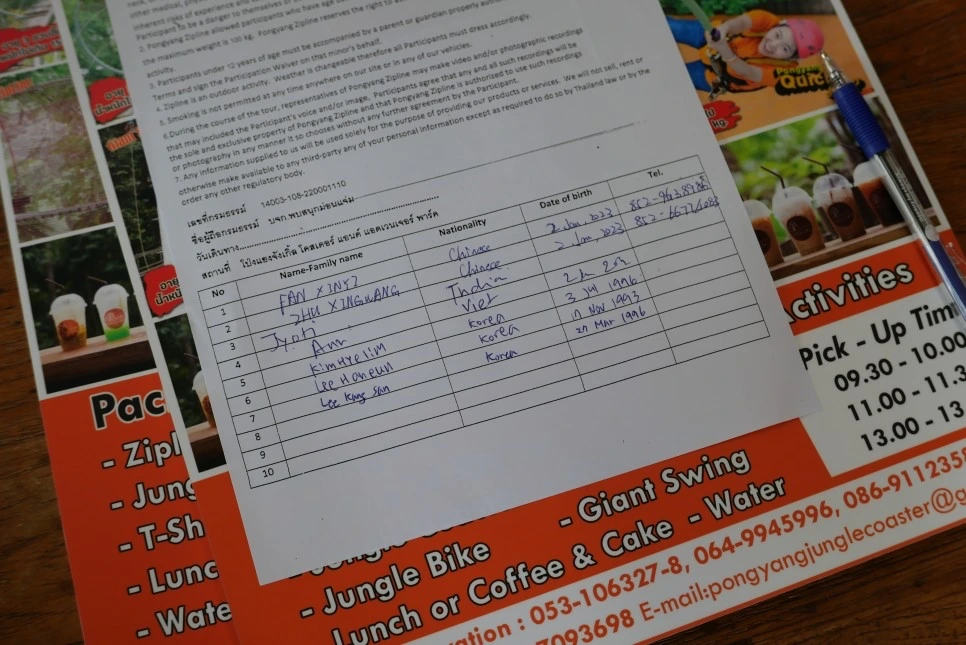 other medical, physi
inherent risks of experience and
Participant to be a danger to themselves or
2. Pongyang Zipline allowed participants who have age
the maximum weight is 100 kg. Pongyang Zipline reserves the right to
activity.
3. Participants under 12 years of age must be accompanied by a parent or guardian properly
Terms and sign the Participation Waiver on that minor's behalf.
4. Zipline is an outdoor activity. Weather is changeable therefore all Participants must dress accordingly.
5. Smoking is not permitted at any time anywhere on our site or in any of our vehicles.
6. During the course of the tour, representatives of Pongyang Zipline may make video and/or photographic recordings
that may included the Participant's voice and/or image. Participants agree that any and all such recordings will be
the sole and exclusive property of Pongyang Zipline and that Pongyang Zipline is authorised to use such recordings
or photography in any manner it so chooses without any further agreement by the Participant.
7. Any information supplied to us will be used solely for the purpose of providing our products or services. We will not sell, rent or
otherwise make available to any third-party any of your personal information except as required to do so by Thailand law or by the
order any other regulatory body.
เลขที่กรมธรรม์ 14003-108-220001110
ชื่อผู้ถือกรมธรรม์ บจก.พบสนุกม่อนแจ่ม
วันเดินทาง
สถานที่ โป่งแยงจังเกิ้ล โคสเตอร์ แอนด์ แอดเวนเจอร์ พาร์ค
No Name-Family name Nationality Date of birth Tel.
1 FAN XINYI Chinese 2 Jan, 2023
2 ZHU XINGWANG Chinese 2 Jan, 2023
3 Jyoti India
4 Ann Viet
5 Kim Hye lim Korea 3 Jul 1996
6 Lee Ha neun Korea 17 Nov 1993
7 Lee Kang San Korea 27 Mar 1996
8
9
10
Pongyang
Quick
Activities
Pick - Up Tim
09.30 - 10.00
11.00 - 11.3
13.00 - 13.
Pac
- Zipl
- Jung
- T-Sh
- Lunc
- Wate
- Giant Swing
- Jungle Bike
Lunch or Coffee & Cake - Water
ation : 053-106327-8, 064-9945996, 086-9112358
7093698 E-mail:pongyangjunglecoaster@g